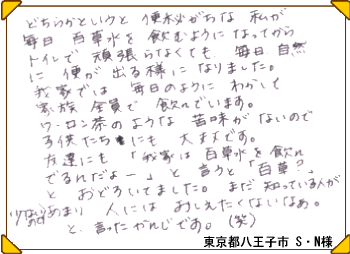 どちらかというと 便秘がちな 私が
毎日 百草水を 飲むようになってから
トイレで 頑張らなくても 毎日 自然
に 便が 出る様に なりました。
我家では 毎日のように わかして
家族 全員で 飲んでいます。
ウーロン茶のような 苦味が ないので
子供たちにも 大丈夫です。
友達にも 「我家は 百草水を 飲ん
でるんだよー」 と 言うと 「百草?」
と おどろいてました。 まだ 知っている人が
少ないので あまり 人には おしえたくないなぁ。
と 言ったかんじです。(笑)
東京都八王子市 S・N様